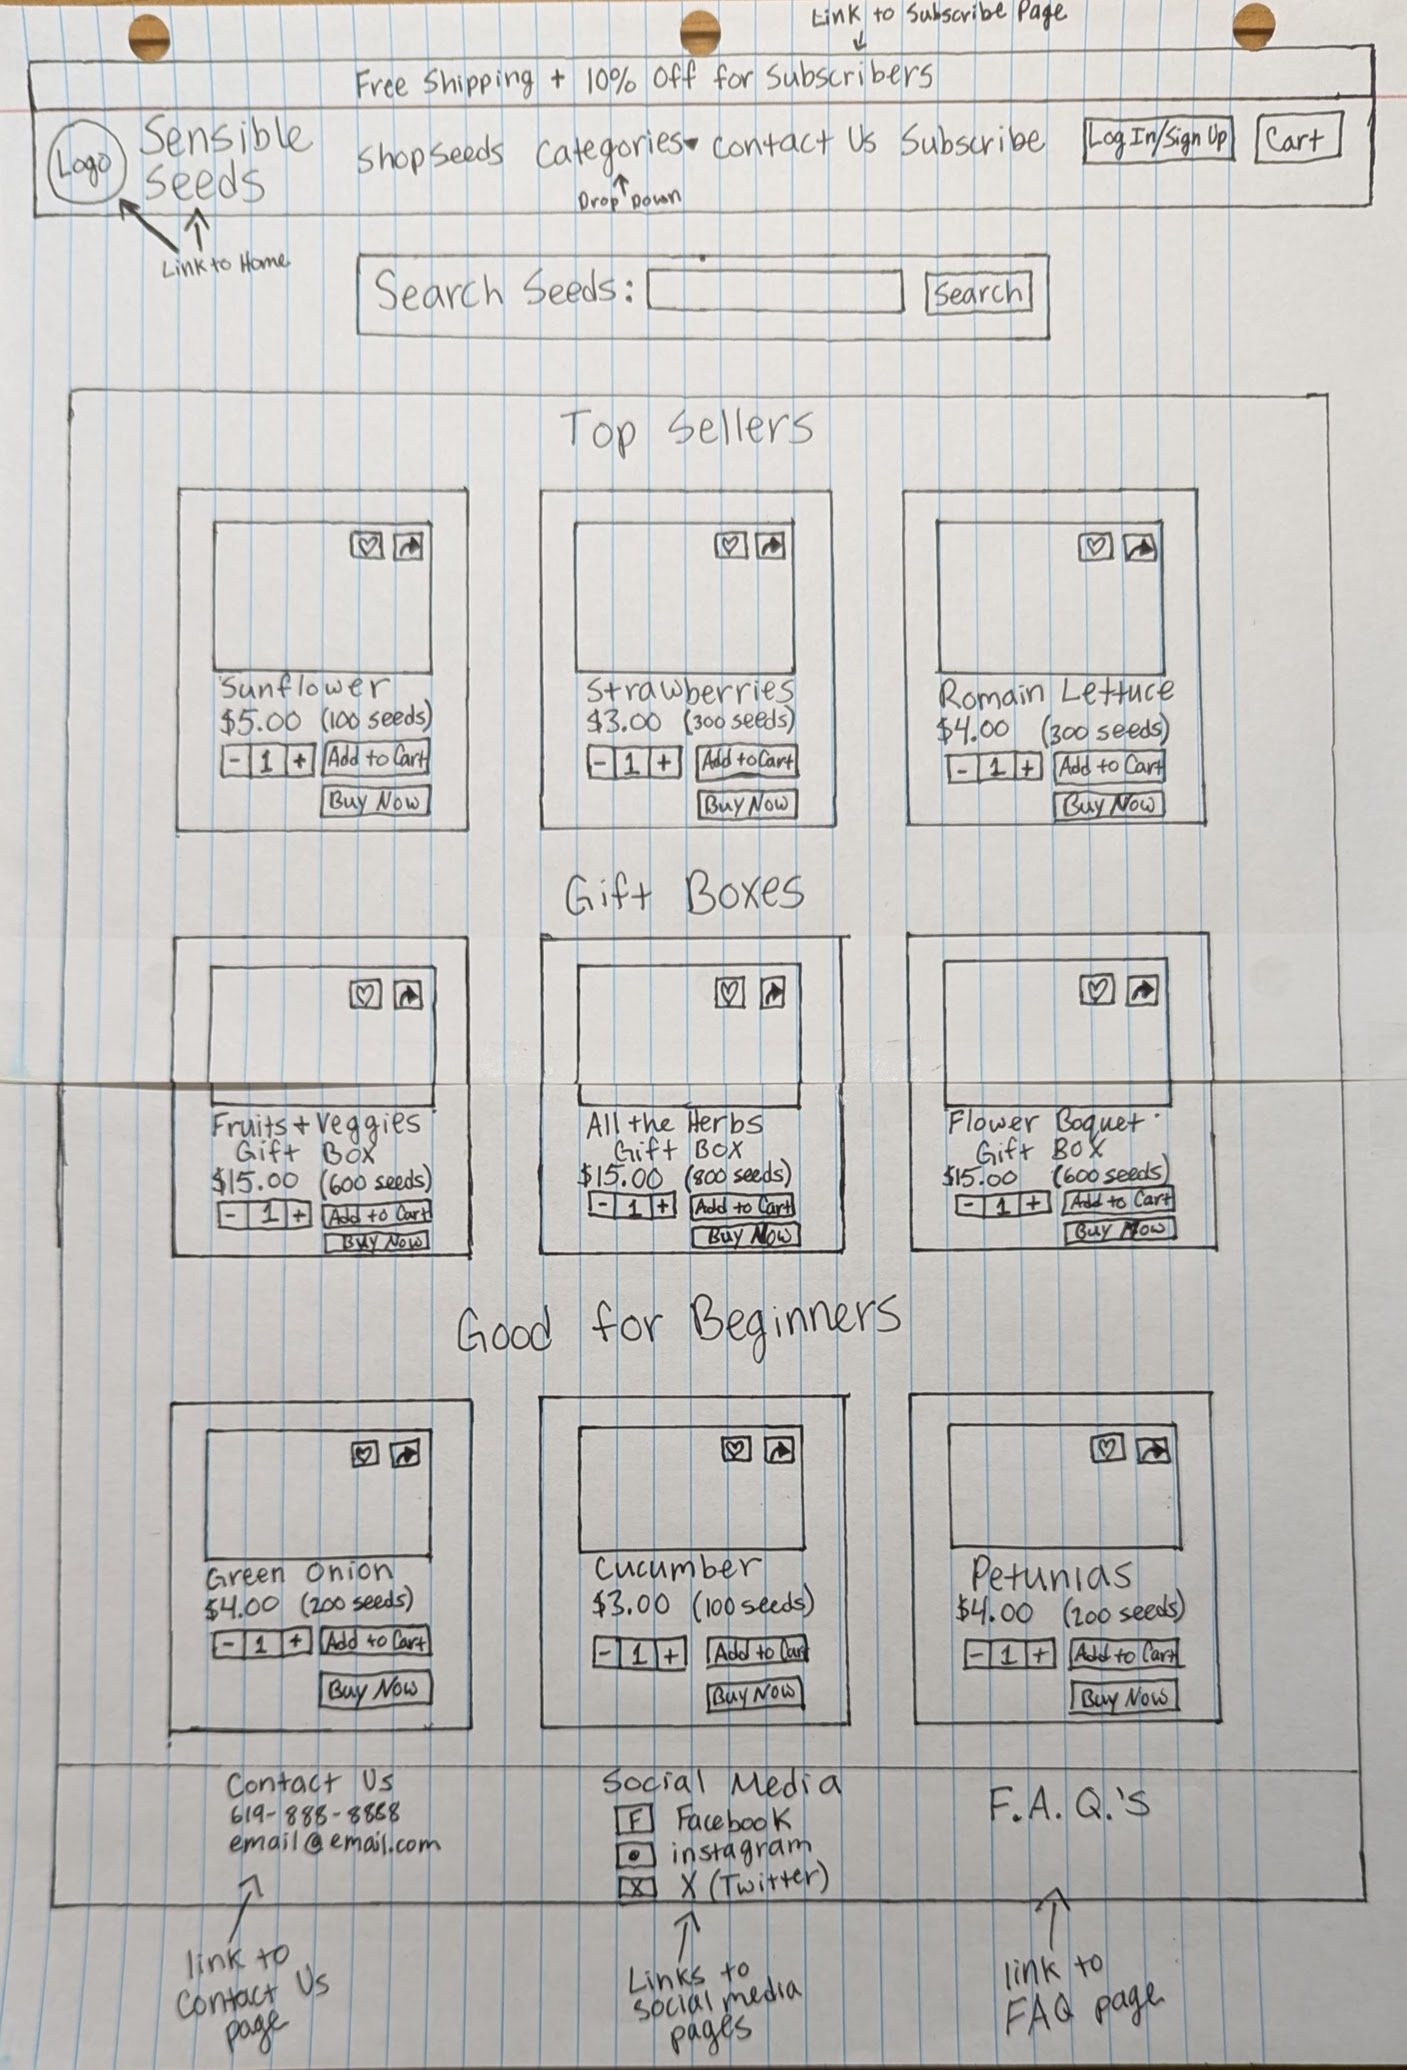 Link to Subscribe Page
Free Shipping + 10% Off for Subscribers
Logo
Sensible
Seeds
Shop Seeds
Categories
Contact Us
Subscribe
Log In/Sign Up
Cart
Drop Down
Link to Home
Search Seeds:
Search
Top Sellers
Sunflower
$5.00 (100 seeds)
- 1 + Add to Cart
Buy Now
Strawberries
$3.00 (300 seeds)
- 1 + Add to Cart
Buy Now
Romain Lettuce
$4.00 (300 seeds)
- 1 + Add to Cart
Buy Now
Gift Boxes
Fruits + Veggies
Gift Box
$15.00 (600 seeds)
- 1 + Add to Cart
Buy Now
All the Herbs
Gift Box
$15.00 (800 seeds)
- 1 + Add to Cart
Buy Now
Flower Boquet
Gift Box
$15.00 (600 seeds)
- 1 + Add to Cart
Buy Now
Good for Beginners
Green Onion
$4.00 (200 seeds)
- 1 + Add to Cart
Buy Now
Cucumber
$3.00 (100 seeds)
- 1 + Add to Cart
Buy Now
Petunias
$4.00 (200 seeds)
- 1 + Add to Cart
Buy Now
Contact Us
619-888-8888
email@email.com
Social Media
F Facebook
instagram
X X (Twitter)
F.A.Q.'s
link to
Contact Us
page
Links to
social media
pages
link to
FAQ page